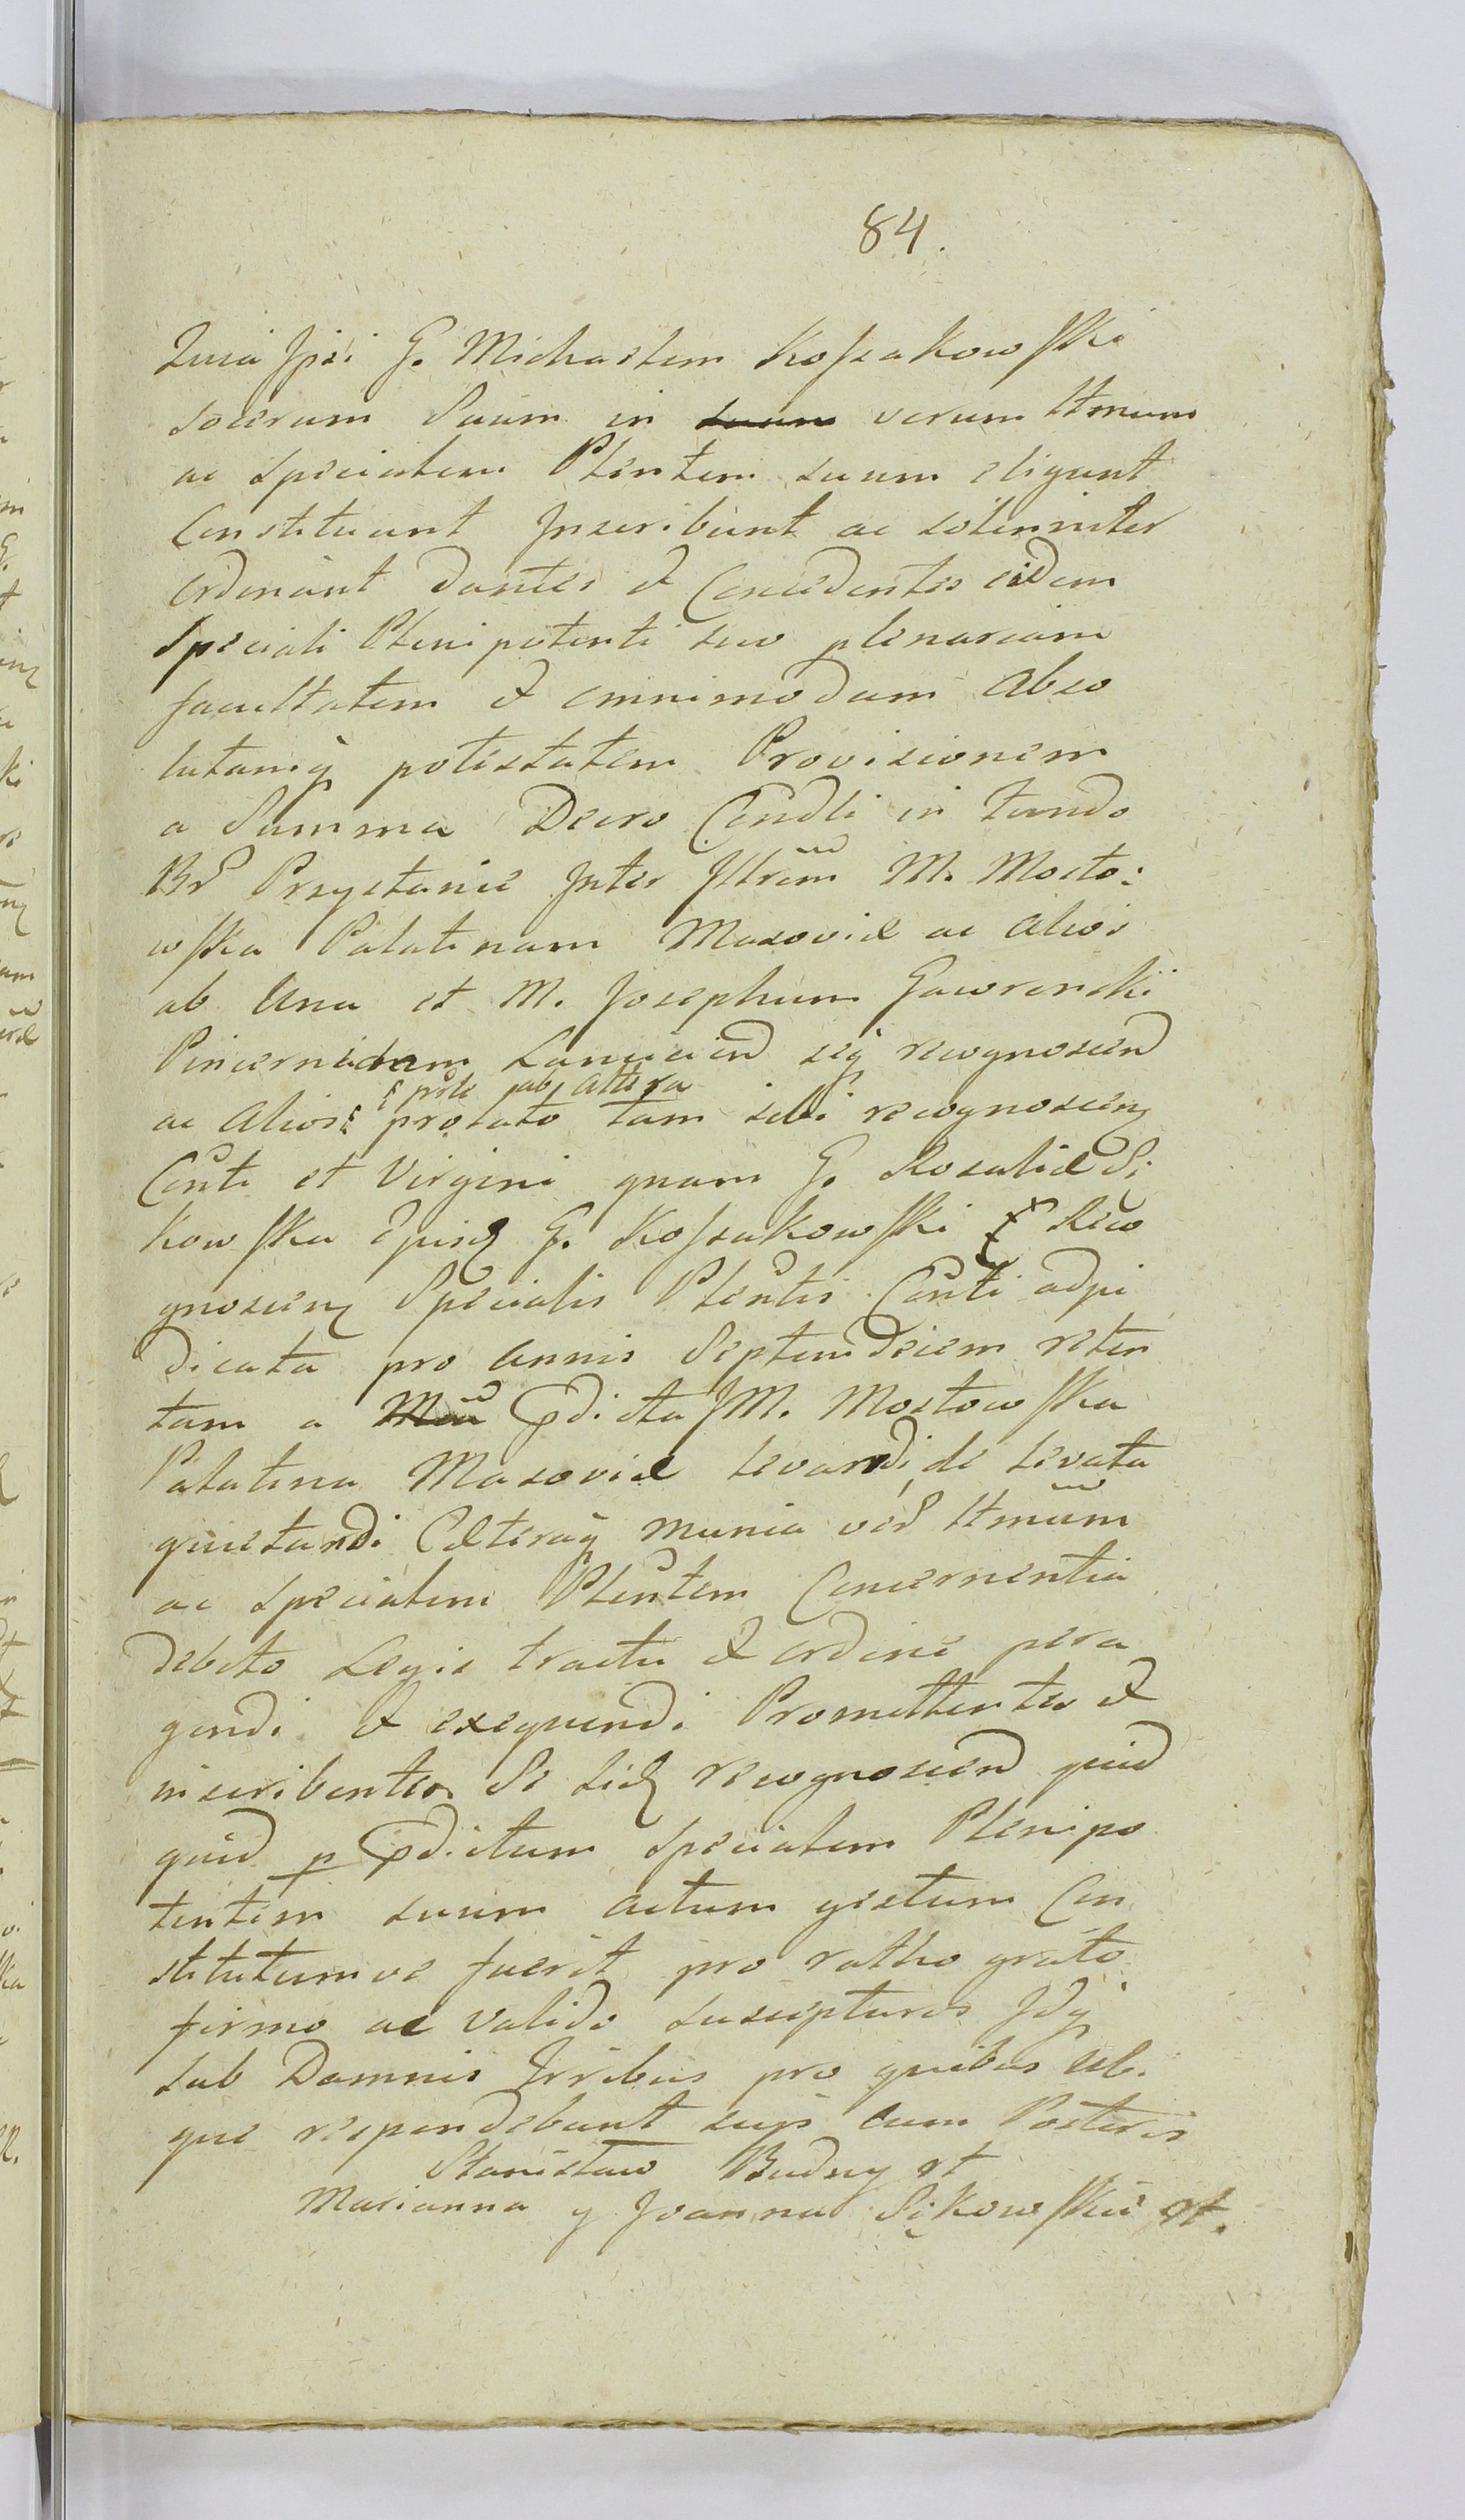 84.
Quia Ipsi G. Michaelem Kossakowski
socerum Suum in suum verum Ltmum
ac specialem Plentem suum eligunt
Constituunt Inscribunt ac solenniter
ordinant dantes et Concedentes eidem
Speciali Plenipotenti suo plenariam
facultatem et omnimodam Abso
lutamq potestatem Provisionem
a Summa Decro Condli in fundo
Br Przystanie Inter Illrem M. Mosto:
wska Palatinam Masoviæ ac Alios
ab Una et M. Josephum Gaworski
Pincernidam seq recognoscend
prte ab Altera
ac Alios prolato tam sibi recognoscen
Conti et Virgini quam G. Rosaliæ Si
kowska G. Kossakowski Reco
gnoscen Specialis Plentis Conti adpi
dicata pro annis Septemdecim reten
tam a dicta JM. Mostowska
Palatina Masoviæ levandi de levata
quietandi Cæteraq munia ver Ltmum
ac specialem Plentem Concernentia
debito Legis tractu et ordine pera
gendi et exequendi Promittentes et
inscribentes Se recognoscend quid
quid p dictum specialem Plenipo
tentem suum actum gestum Con
stitutumve fuerit pro ratho grato
firmo ac valido suscepturos Idq
sub Damnis Irribus pro quibus ubi
que respondebunt suis cum Posteris
Stanisław Budny
Marianna y Joanna Sikowskie